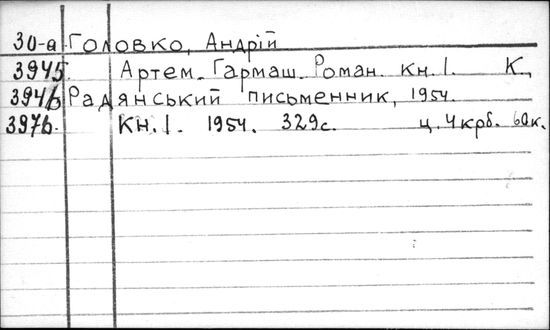 30-а Головко, Андрій
3945. Артем Гармаш. Роман. Кн. 1. К.,
394б Радянський письменник, 1954.
397б. Кн. 1. 1954. 329с. ц. 4крб. 60к.